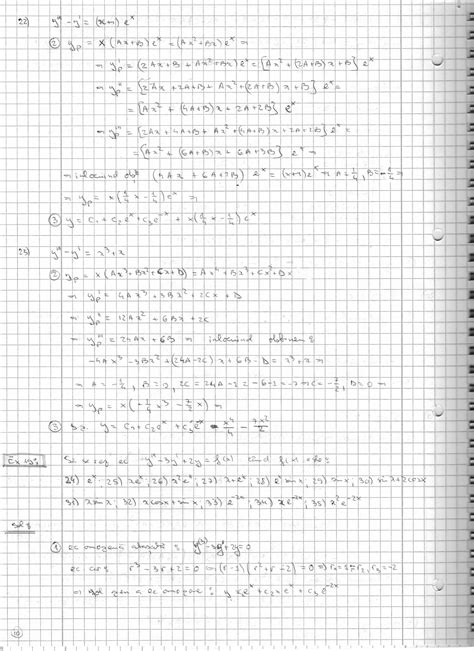 22) y''' - y' = (x+1) e^x
② y_p = x (Ax+B) e^x = (Ax²+Bx) e^x ⇒
⇒ y_p' = (2Ax+B + Ax²+Bx) e^x = [Ax² + (2A+B)x + B] e^x
⇒ y_p'' = [2Ax + 2A+B + Ax² + (2A+B)x + B] e^x =
= [Ax² + (4A+B)x + 2A+2B] e^x
⇒ y_p''' = [2Ax + 4A+B + Ax² + (4A+B)x + 2A+2B] e^x =
= [Ax² + (6A+B)x + 6A+3B] e^x ⇒
(4Ax + 6A+2B) e^x = (x+1) e^x ⇒ A = 1/4, B = -1/4 ⇒
⇒ y_p = x(1/4 x - 1/4) e^x ⇒
③ y = c1 + c2 e^x + c3 e^-x + x(1/4 x - 1/4) e^x
23) y''' - y' = x³ + x
② y_p = x (Ax³+Bx²+Cx+D) = Ax⁴ + Bx³ + Cx² + Dx
⇒ y_p' = 4Ax³ + 3Bx² + 2Cx + D
⇒ y_p'' = 12Ax² + 6Bx + 2C
⇒ y_p''' = 24Ax + 6B ⇒ inlocuind obtinem
-4Ax³ - 3Bx² + (24A-2C)x + 6B - D = x³ + x ⇒
⇒ y_p = x(-1/4 x³ - 7/2 x) ⇒
③ y = c1 + c2 e^x + c3 e^-x - x⁴/4 - 7x²/2
Ex 19:
24) e^x, 25) xe^x, 26) x²e^x, 27) 28) e^x sin x, 29) sin x, 30) sin x + 2cos x
31) x sin x, 32) x cos x + sin x, 33) e^-2x, 34) x e^-2x, 35) x² e^-2x
Sol
① ec omogena
ec car r³ - 3r + 2 = 0 ⇒ (r-1)(r²+r-2) = 0 ⇒ r1 = 1 = r2, r3 = -2
⇒ sol gen a ec omogene : y = c1 e^x + c2 x e^x + c3 e^-2x
10